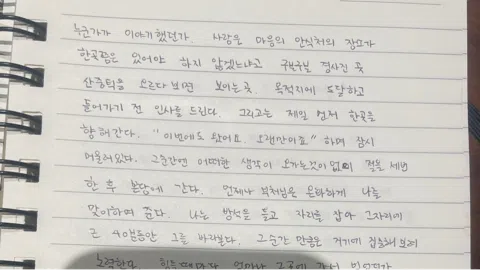 누군가가 이야기했던가. 사람은 마음의 안식처의 장소가
한곳쯤은 있어야 하지 않겠느냐고 경사진 곳
산중턱을 오르다보면 보이는 곳. 목적지에 도달하고
들어가기 전 인사를 드린다. 그리고는 제일 먼저 한곳을
향해간다. "이번에도 왔어요. 오랜만이죠" 하며 잠시
머물러있다. 그순간엔 어떠한 생각이 오가는것이 없이 절을 세번
한 후 본당에 간다. 언제나 부처님은 온화하게 나를
맞이하여 준다. 나는 방석을 들고 자리를 잡아 그자리에
근 40분동안 그를 바라본다. 그순간 만큼은 거기에 집중해 보려
노력한다. 힘들때마다